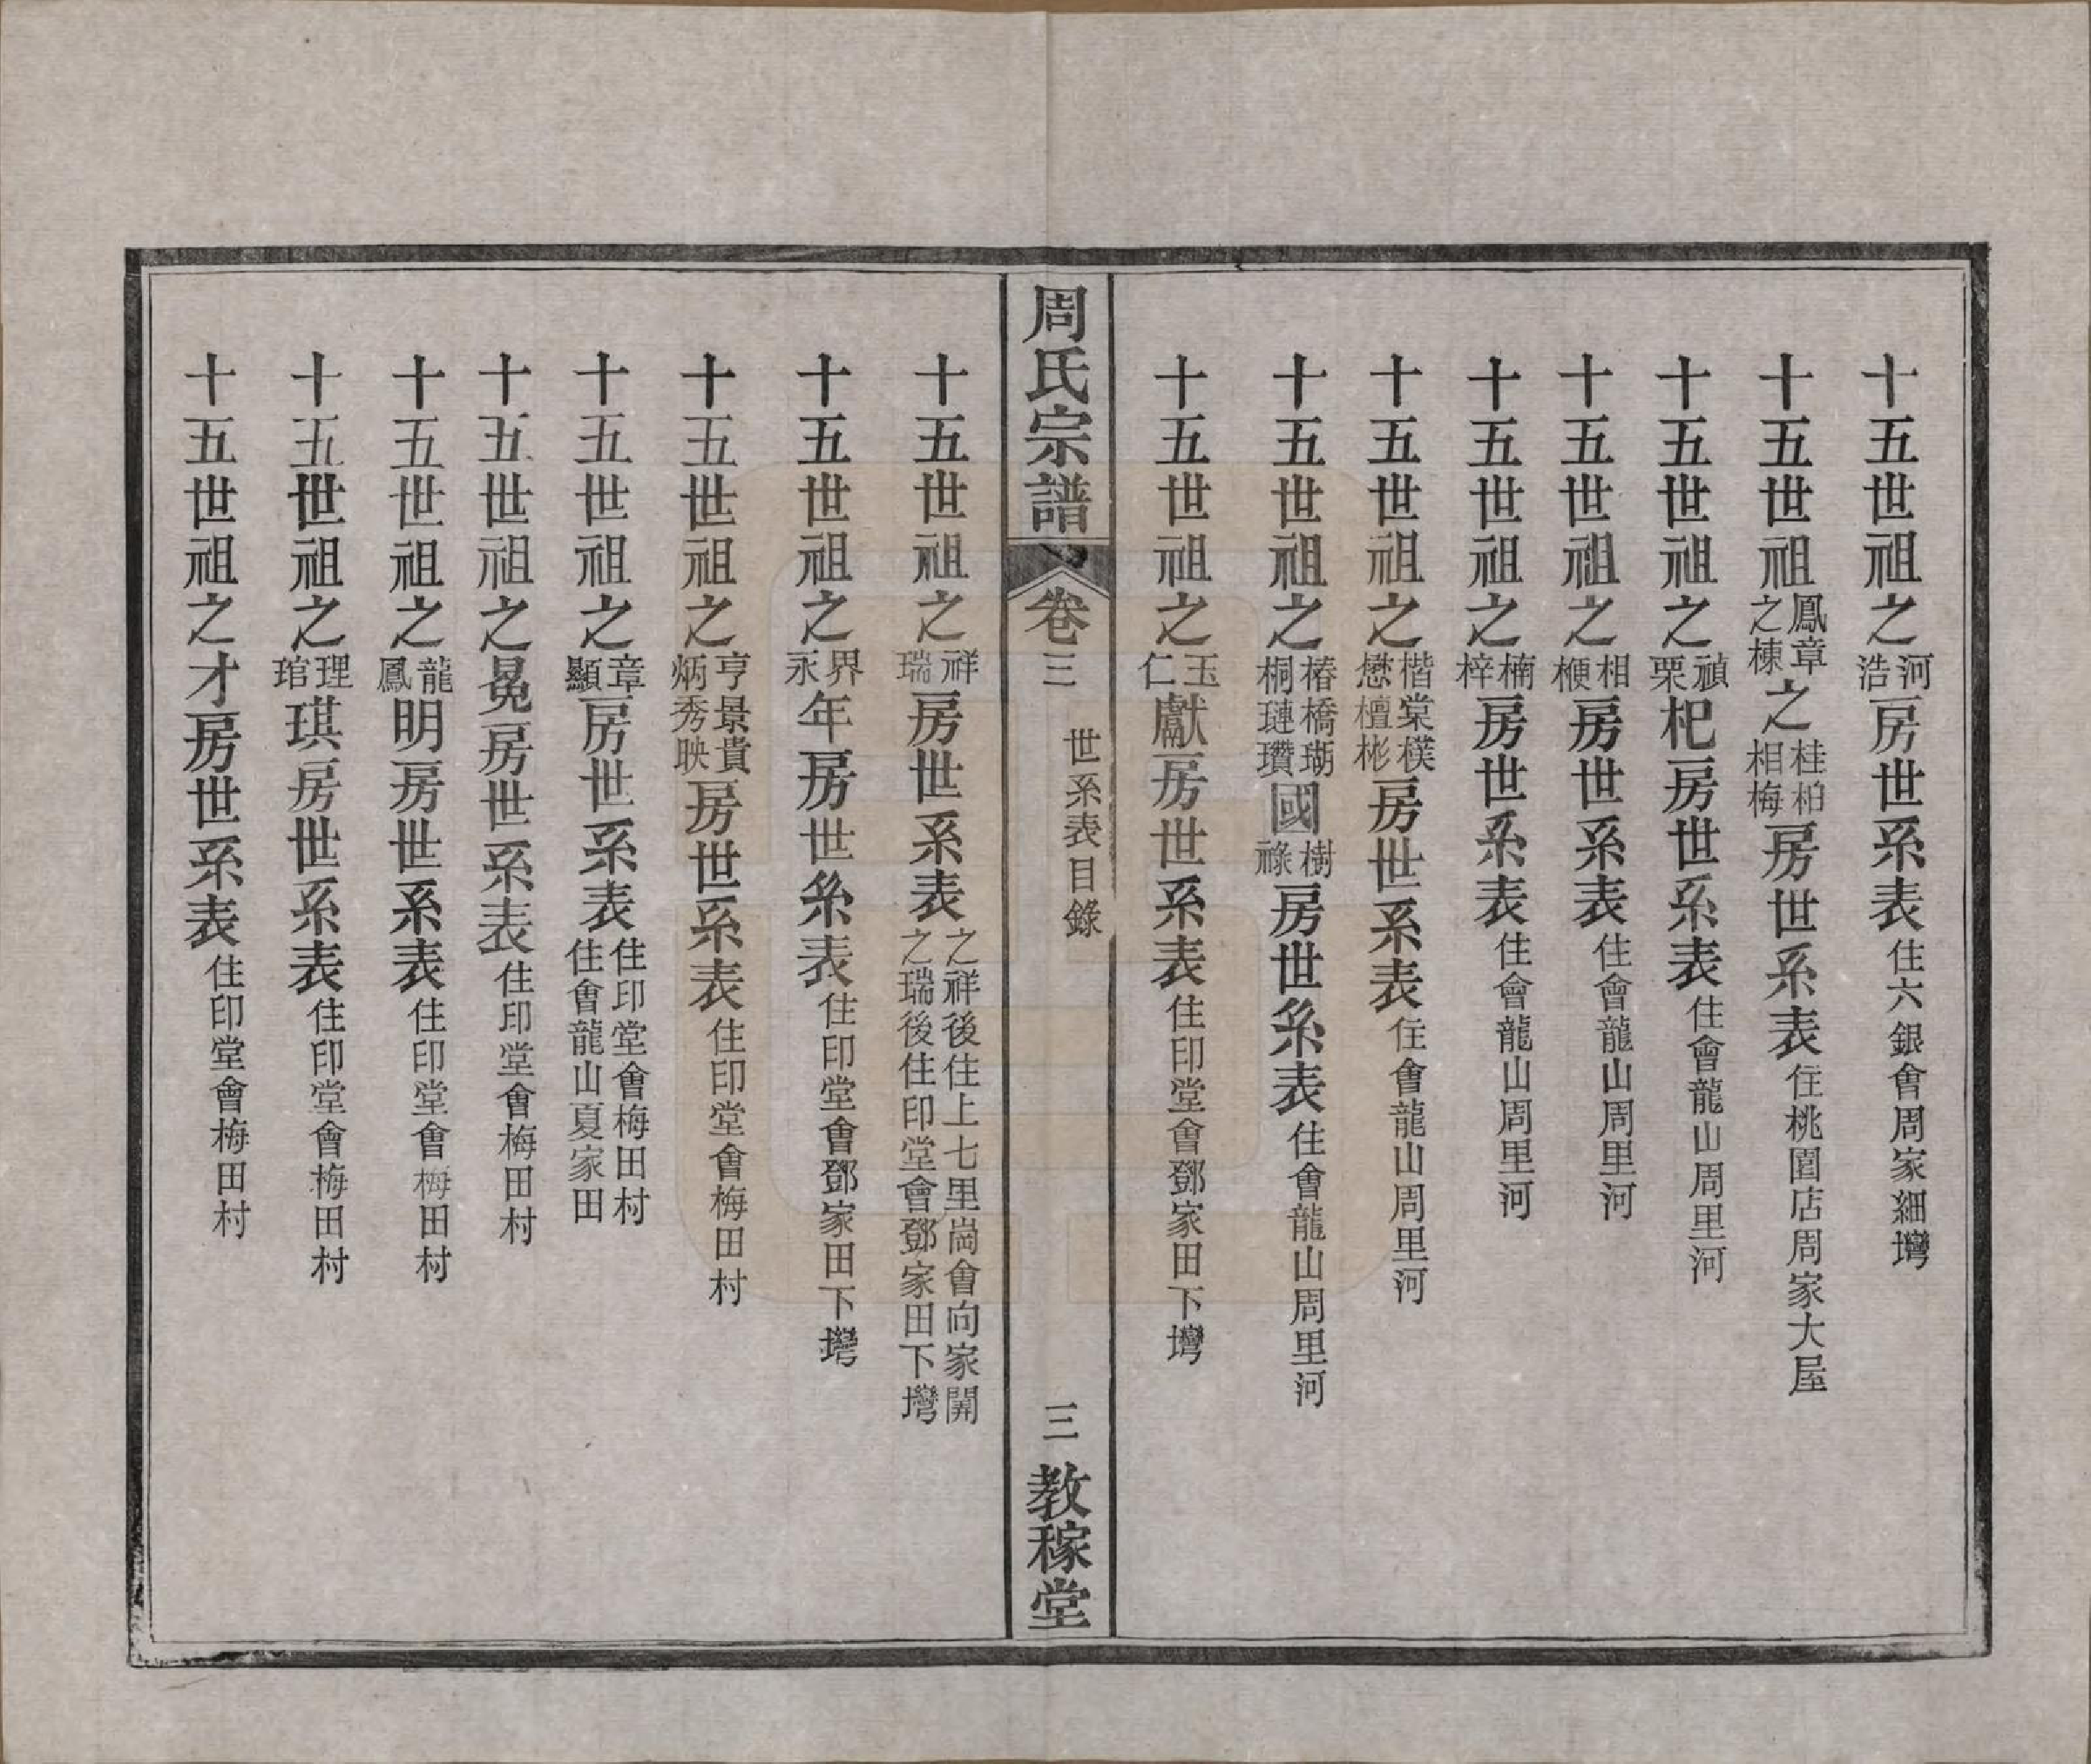 十五世祖之河浩房世系表住六銀會周家細壪
十五世祖鳳章之棟之桂柏相梅房世系表住桃園店周家大屋
十五世祖之禎栗杞房世系表住會龍山周里河
十五世祖之相梗房世系表住會龍山周里河
十五世祖之楠梓房世系表住會龍山周里河
十五世祖之楷棠樸懋檀彬房世系表住會龍山周里河
十五世祖之椿橋瑚桐璉瓚國樹祿房世系表住會龍山周里河
十五世祖之玉仁獻房世系表住印堂會鄧家田下壪
周氏宗譜 卷三 世系表目錄 三 教稼堂
十五世祖之祥瑞房世系表之祥後住上七里崗會向家開之瑞後住印堂會鄧家田下壪
十五世祖之界永年房世系表住印堂會鄧家田下壪
十五世祖之亨景貴炳秀映房世系表住印堂會梅田村
十五世祖之章顯房世系表住印堂會梅田村住會龍山夏家田
十五世祖之冕房世系表住印堂會梅田村
十五世祖之龍鳳明房世系表住印堂會梅田村
十五世祖之理琯琪房世系表住印堂會梅田村
十五世祖之才房世系表住印堂會梅田村